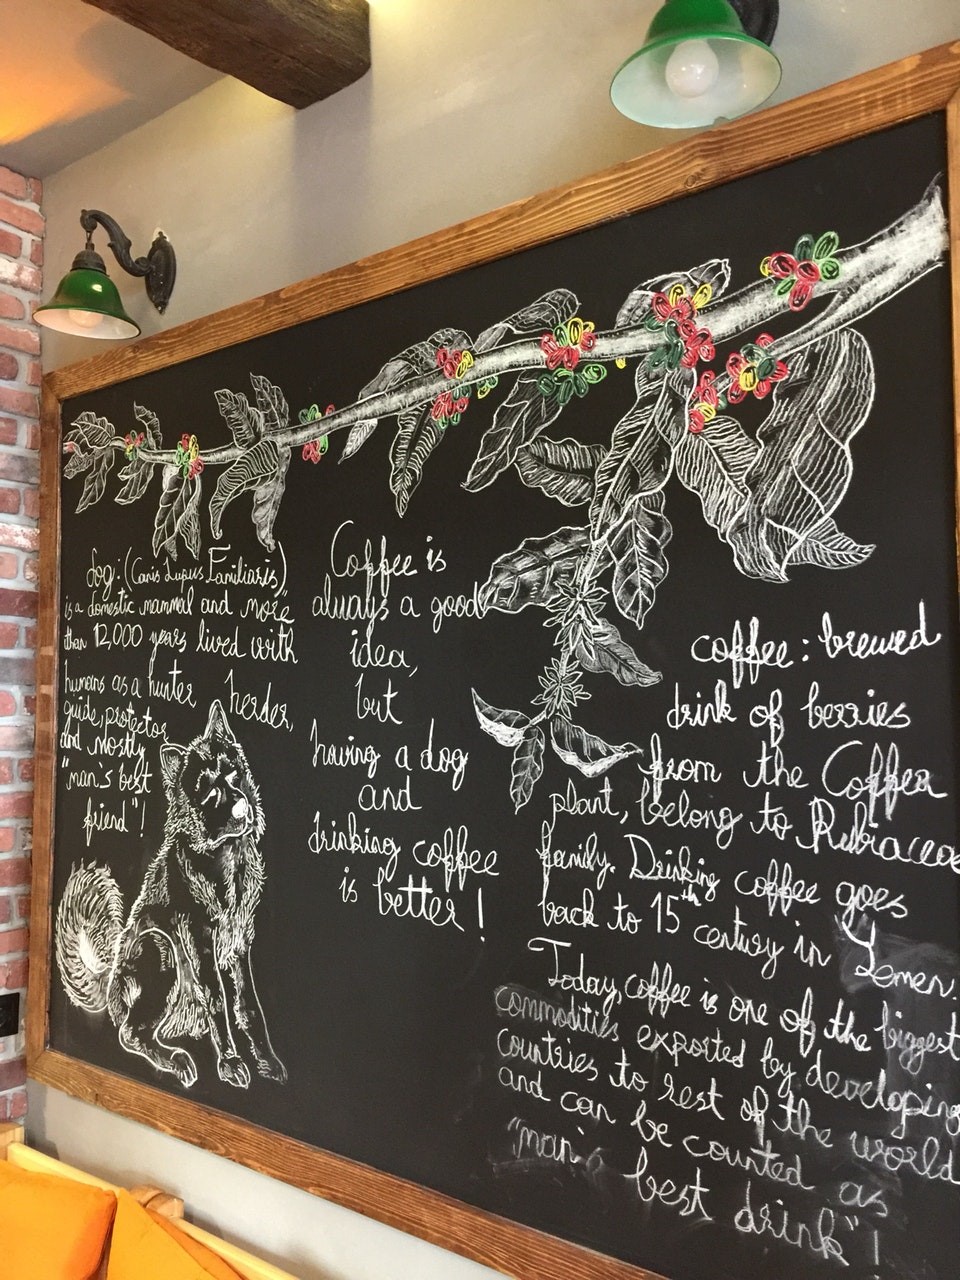 dog: (Canis Lupus Familiaris)
is a domestic mammal and more
than 12,000 years lived with
humans as a hunter, herder,
guide, protector
and mostly
"man's best
friend"!
Coffee is
always a good
idea,
but
having a dog
and
drinking coffee
is better!
coffee: brewed
drink of berries
from the Coffea
plant, belong to Rubiaceae
family. Drinking coffee goes
back to 15th century in Yemen.
Today, coffee is one of the biggest
commodities exported by developing
countries to rest of the world
and can be counted as
"man's best drink"!